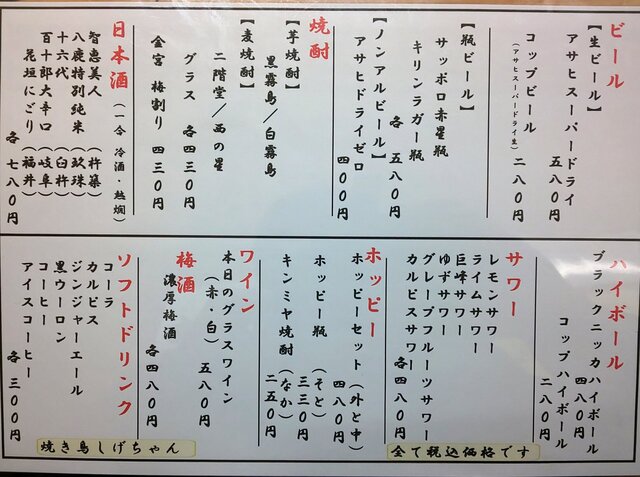 ビール
【生ビール】
アサヒスーパードライ
五八〇円
コップビール
(アサヒスーパードライ生)
二八〇円
【瓶ビール】
サッポロ赤星瓶
キリンラガー瓶
各 五八〇円
【ノンアルビール】
アサヒドライゼロ
四〇〇円
焼酎
【芋焼酎】
黒霧島/白霧島
【麦焼酎】
二階堂/西の星
グラス 各四三〇円
金宮 梅割り 四三〇円
日本酒 (一合 冷酒・熱燗)
智恵美人 (杵築)
八鹿特別純米 (玖珠)
十六代 (臼杵)
百十郎大辛口 (岐阜)
花垣にごり (福井)
各 七八〇円
ハイボール
ブラックニッカハイボール
四八〇円
コップハイボール
二八〇円
サワー
レモンサワー
ライムサワー
巨峰サワー
ゆずサワー
グレープフルーツサワー
カルピスサワー
各四八〇円
ホッピー
ホッピーセット (外と中)
四八〇円
ホッピー瓶 (そと)
三三〇円
キンミヤ焼酎 (なか)
二五〇円
ワイン
本日のグラスワイン
(赤・白) 五八〇円
梅酒
濃厚梅酒
各四八〇円
ソフトドリンク
コーラ
カルピス
ジンジャーエール
黒ウーロン
コーヒー
アイスコーヒー
各 三〇〇円
焼き鳥しげちゃん
全て税込価格です